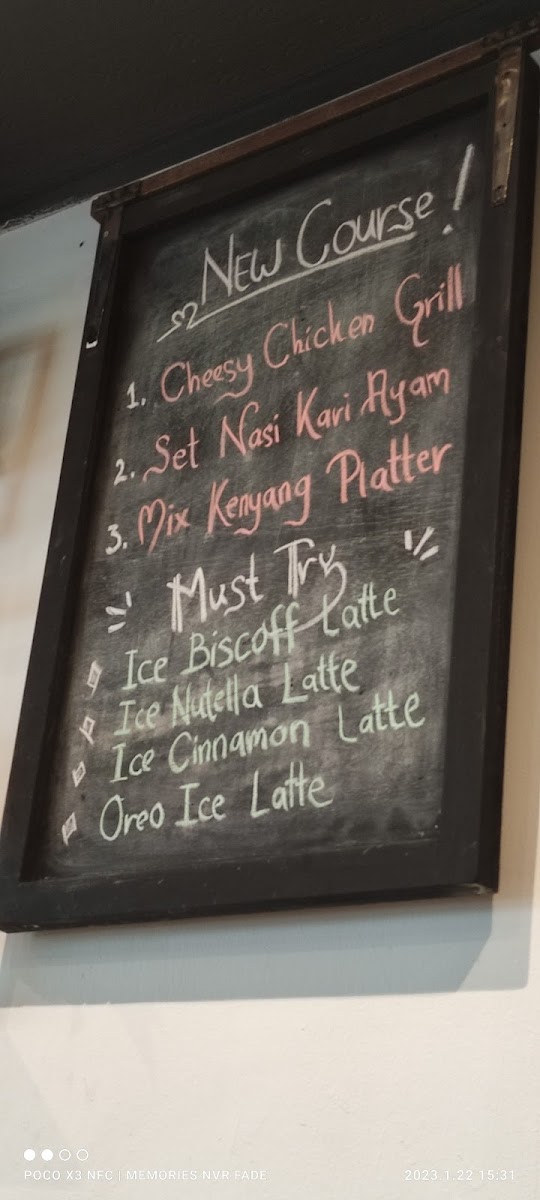 New Course!
1. Cheesy Chicken Grill
2. Set Nasi Kari Ayam
3. Mix Kenyang Platter
Must Try
Ice Biscoff Latte
Ice Nutella Latte
Ice Cinnamon Latte
Oreo Ice Latte
POCO X3 NFC | MEMORIES NVR FADE
2023.1.22 15:31